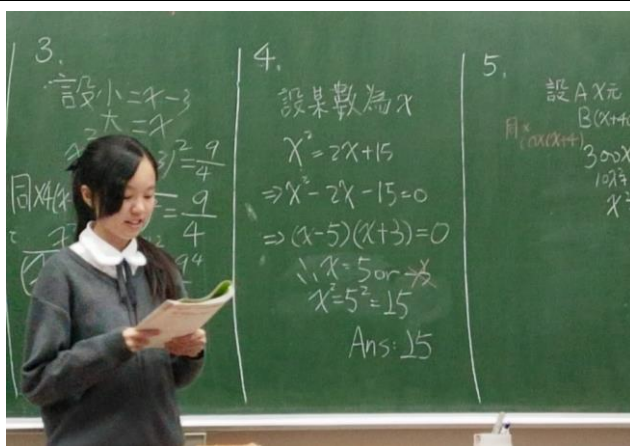 3.
設小=x-3
大=x
)²=9/4
同x4(x-
=9/4
4.
設某數為x
x²=2x+15
⇒x²-2x-15=0
⇒(x-5)(x+3)=0
∴x=5or
x²=5²=25
Ans:25
5.
設A x元
B(x+40
同x
300x
10x²+
x²